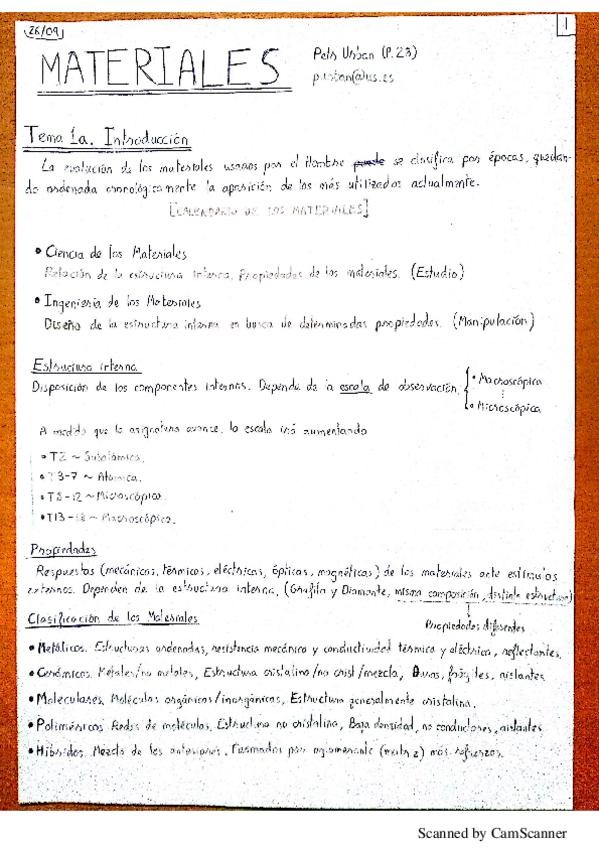 26/09
1
MATERIALES
Petr Urban (P.23)
p.urban@us.es
Tema 1a. Introducción
La evolución de los materiales usados por el Hombre se clasifica por épocas, quedan-
do ordenada cronológicamente la aparición de los más utilizados actualmente.
[CALENDARIO DE LOS MATERIALES]
• Ciencia de los Materiales
Relación de la estructura interna. Propiedades de los materiales. (Estudio)
• Ingeniería de los Materiales
Diseño de la estructura interna en busca de determinadas propiedades. (Manipulación)
Estructura interna
Disposición de los componentes internos. Depende de la escala de observación
• Macroscópica
• Microscópica
A medida que la asignatura avance, la escala irá aumentando
• T2 ~ Subatómica.
• T3-7 ~ Atómica.
• T8-12 ~ Microscópica.
• T13-18 ~ Macroscópica.
Propiedades
Respuestas (mecánicas, térmicas, eléctricas, ópticas, magnéticas) de los materiales ante estímulos
externos. Dependen de la estructura interna. (Grafito y Diamante, misma composición, distinta estructura)
Propiedades diferentes
Clasificación de los Materiales
• Metálicos. Estructuras ordenadas, resistencia mecánica y conductividad térmica y eléctrica, reflectantes.
• Cerámicos. Metales/no metales, Estructura cristalina/no crist/mezcla, Duros, frágiles, aislantes
• Moleculares. Moléculas orgánicas/inorgánicas, Estructura generalmente cristalina.
• Poliméricos. Redes de moléculas. Estructura no cristalina, Baja densidad, no conductores, aislantes
• Híbridos. Mezcla de los anteriores. Formados por aglomerante (matriz) más refuerzos.
Scanned by CamScanner